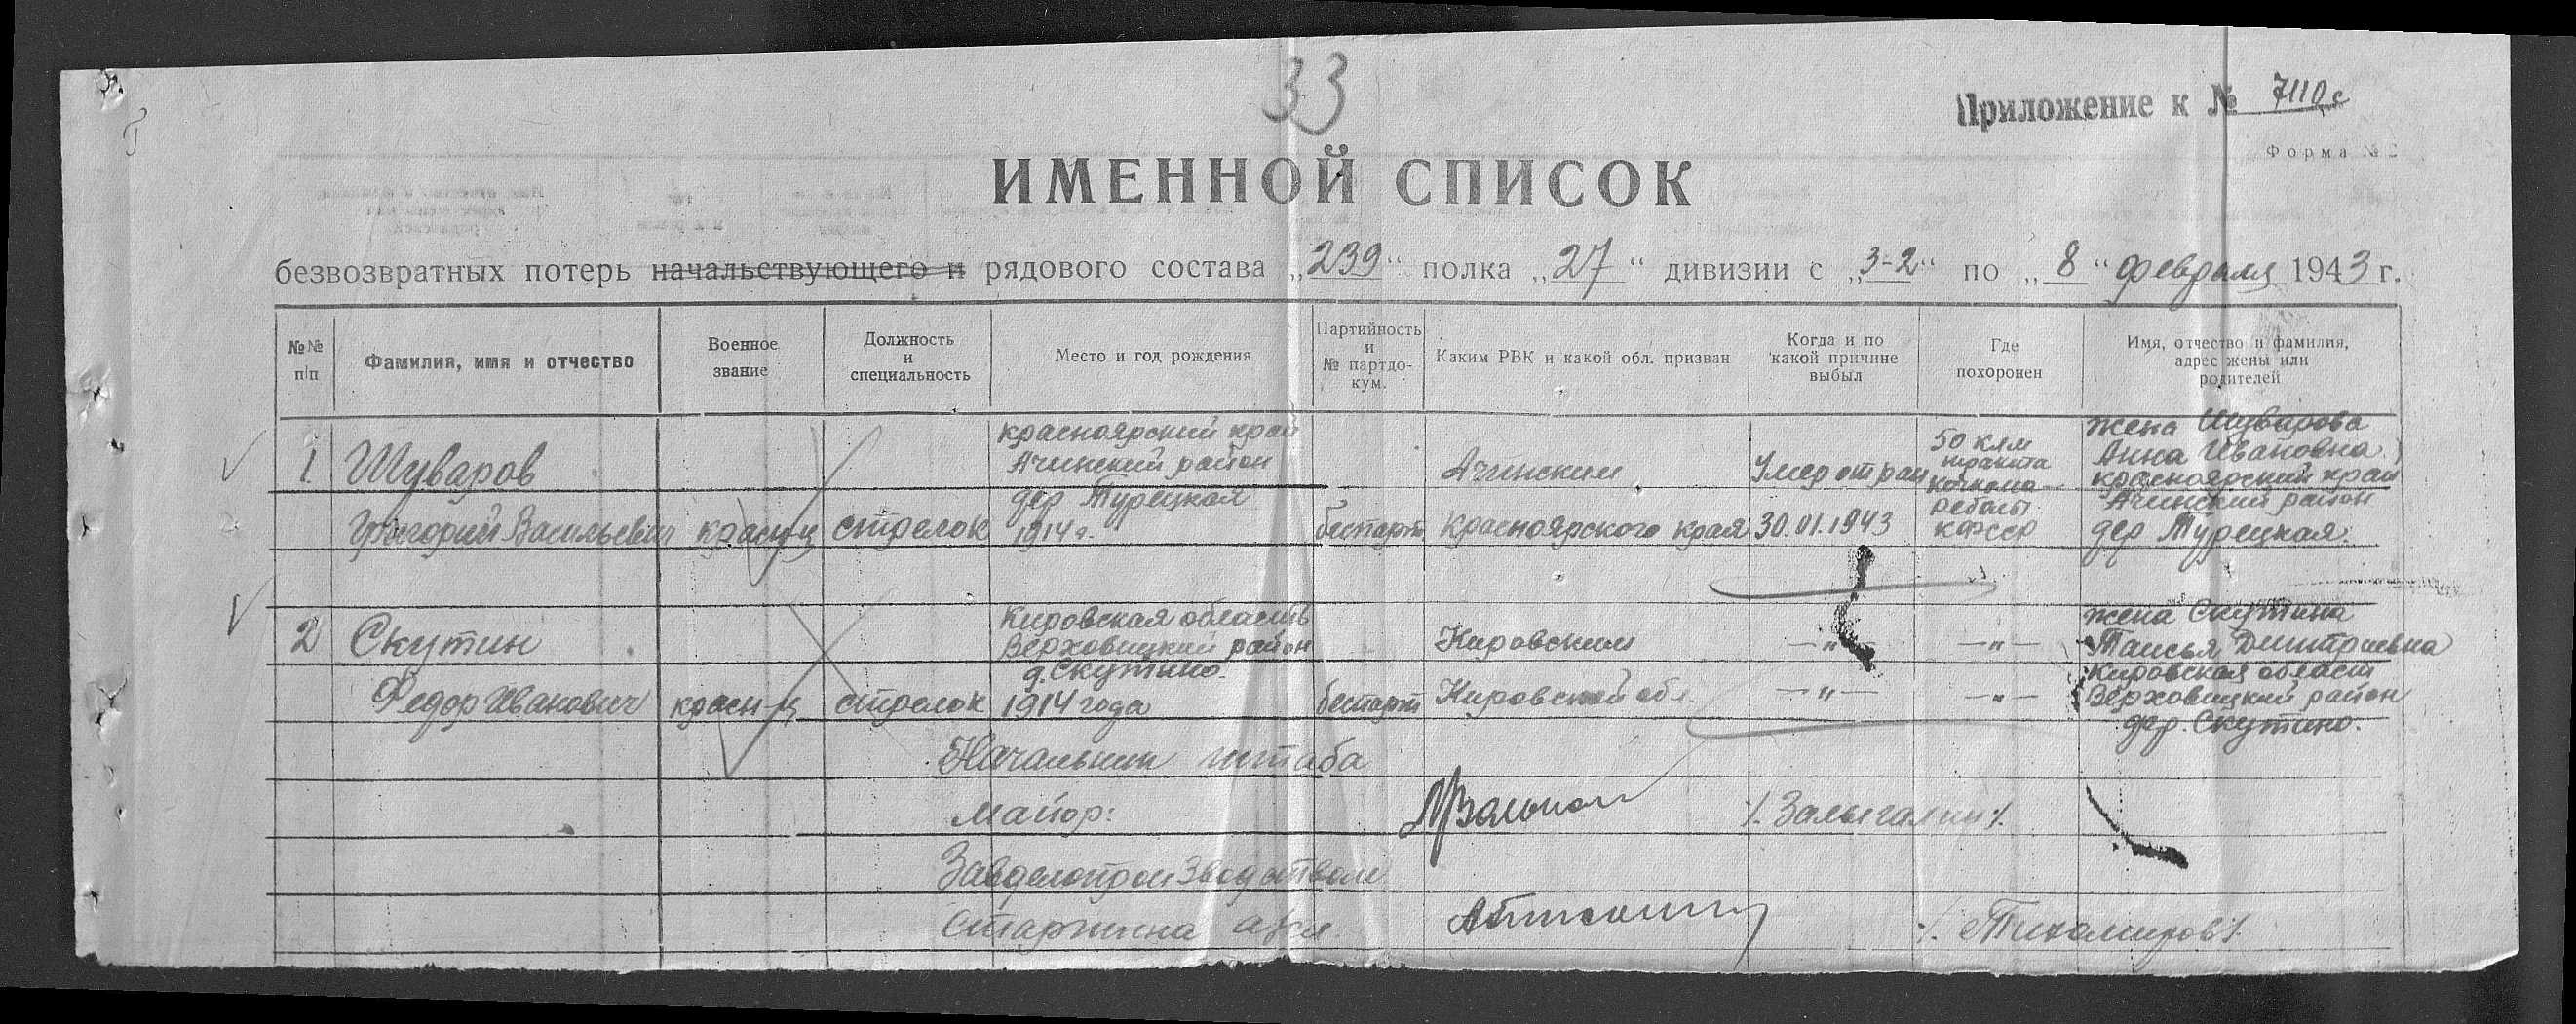 33
Приложение к № 7110с
Форма № 2
ИМЕННОЙ СПИСОК
безвозвратных потерь начальствующего и рядового состава „239“ полка „27“ дивизии с „3-2“ по „8“ февраля 1943 г.
№№ п/п
Фамилия, имя и отчество
Военное звание
Должность и специальность
Место и год рождения
Партийность и № партдо-кум.
Каким РВК и какой обл. призван
Когда и по какой причине выбыл
Где похоронен
Имя, отчество и фамилия, адрес жены или родителей
1.
Шуваров
Григорий Васильевич
красн-ц
стрелок
красноярский край
Ачинский район
дер Турецкая
1914 г.
беспарт
Ачинским
Красноярского края
Умер от ран
30.01.1943
50 клм
тракта
Кочкома-
Реболы
КФССР
жена Шуварова
Анна Ивановна
красноярский край
Ачинский район
дер Турецкая.
2
Скутин
Федор Иванович
красн-ц
стрелок
Кировская область
Верховицкий район
д. Скутино.
1914 года
беспарт
Кировским
Кировской обл.
—"—
—"—
—"—
—"—
жена Скутина
Таисья Дмитриевна
Кировская област
Верховицкий район
дер. Скутино.
Начальник штаба
майор:
/. Залыгалин /.
Завделопроизводством
Старшина а/сл.
/. Тихомиров /.